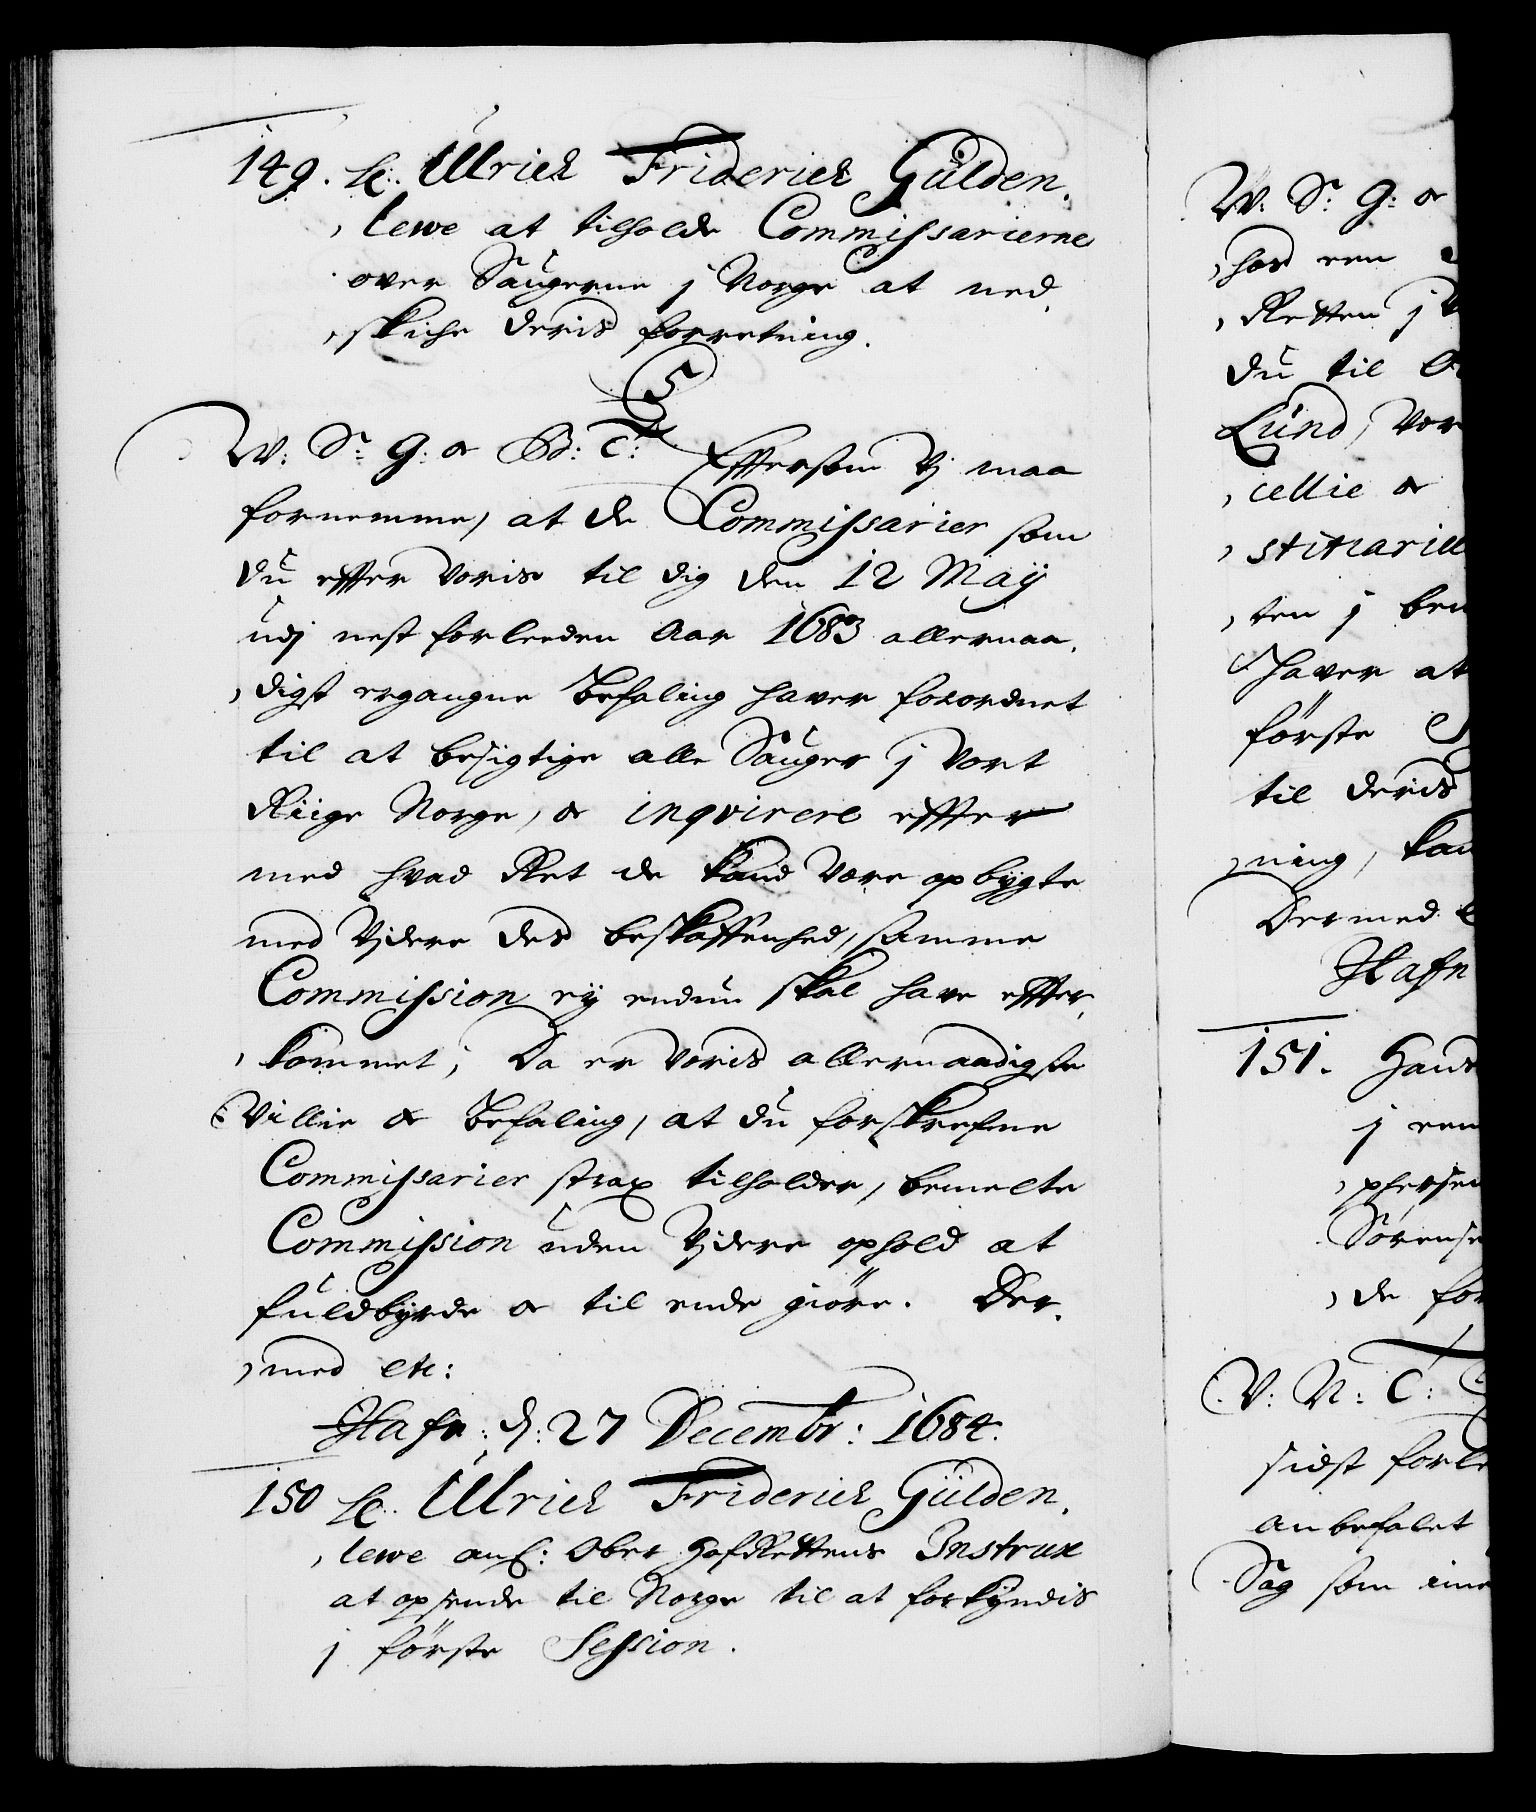 149. hr. Ulrich Friderich Gülden,
,lewe at tilholde Commissarierne
over Saugerne j Norge at ned,
,skiche deris forretning.
5
W: S: G: oc B: C: Effersom Vj maa
fornemme, at de Commissarier som
du effter Voris til dig den 12 Maÿ
udj nest forleeden Aar 1683 allernaa,
,digst ergangne Befaling haver forordnet
til at besigtige alle Sauger j Vort
Riige Norge, oc inqvirere effter
med hvad Ret de kand være opbygte
med Vjdere des beskaffenhed, samme
Commission ey endnu skal have effter,
,kommet; Da er Voris allernaadigste
Villie oc Befaling, at du forskrefne
Commissarier strax tilholder, bemelte
Commission uden Vjdere ophold at
fuldbyrde oc til ende giöre. Der,
,med etc:
Hafn: d: 27 Decembr: 1684.
150 hr. Ulrich Friderich Gülden,
,lewe anl: Ober HofRettens Instrux
at opsende til Norge til at forkyndis
j förste Session.
W: S: G: oc
,hos een
,Retten j
du til
Lund, Vor
,cellie oc
,stitiarii
,ten j
haver at
förste
til deris
,ning,
Dermed
Hafn
151. Hans
j
,phersen
Sörense
,de for
V: N: C:
sidst forle
anbefalet
Sag som